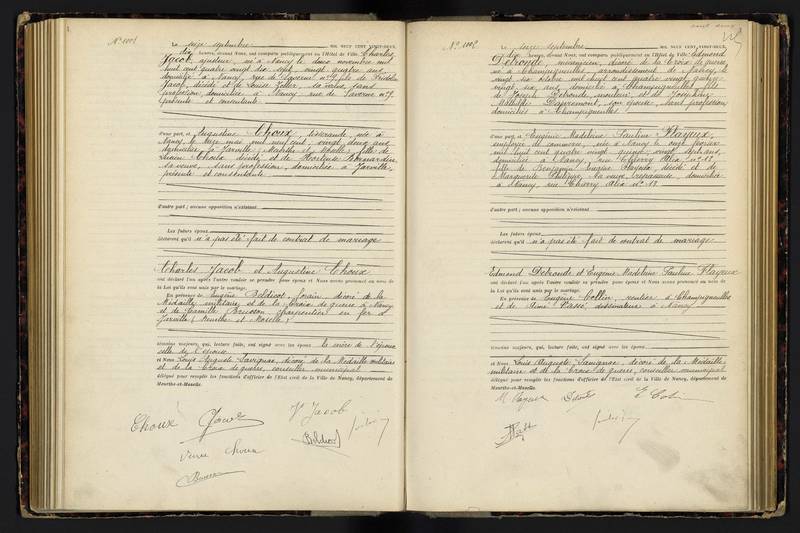 N° 1001
Le seize septembre MIL NEUF CENT VINGT-DEUX,
dix heures, devant Nous, ont comparu publiquement en l'Hôtel de Ville, Charles
Jacob, ajusteur, né à Nancy le douze novembre mil
huit cent quatre vingt dix sept, vingt quatre ans
domicilié à Nancy, rue de Saverne n° 9, fils de
Jacob, décédé et de Louise Zeller, sa veuve, sans
profession, domiciliée à Nancy, rue de Saverne n° 9
présente et consentante
d'une part, et Augustine Choux, née à
Nancy, le mai mil neuf cent, vingt deux ans
domiciliée à Jarville (Meurthe et Moselle), fille de
Choux décédé et de Hortense Bernardin,
sa veuve, sans profession, domiciliée à Jarville,
présente et consentante
d'autre part ; aucune opposition n'existant
Les futurs époux
déclarent qu'il n'a pas été fait de contrat de mariage
Charles Jacob et Augustine Choux
ont déclaré l'un après l'autre vouloir se prendre pour époux et Nous avons prononcé au nom de
la Loi qu'ils sont unis par le mariage.
En présence de Eugène Boldicot, forain, décoré de la
Médaille militaire et de la Croix de guerre, à Nancy
et de Camille Busson charpentier en fer à
Jarville (Meurthe et Moselle)
témoins majeurs, qui, lecture faite, ont signé avec les époux la mère de l'époux
celle de l'épouse
et Nous Louis Auguste Savignac, décoré de la Médaille militaire
et de la Croix de guerre, conseiller municipal
délégué pour remplir les fonctions d'officier de l'Etat civil de la Ville de Nancy, département de
Meurthe-et-Moselle.
Choux Jacob Vve Jacob
Veuve Choux
N° 1002
Le seize septembre MIL NEUF CENT VINGT-DEUX,
dix heures, devant Nous, ont comparu publiquement en l'Hôtel de Ville, Edmond
Detronde, mécanicien, décoré de la Croix de guerre
né à Champigneulles, arrondissement de Nancy, le
vingt six mil huit cent quatre vingt
vingt six ans, domicilié à Champigneulles, fils
de Joseph Detronde, et de Joséphine
Mathilde son épouse, sans profession
domiciliés à Champigneulles
d'une part, et Eugène Madeleine Pauline Flayeux,
employée de commerce, née à Nancy le onze
mil huit cent quatre vingt ans,
domiciliée à Nancy, rue Thierry Alix n° 13
fille de Benjamin Eugène Flayeux, décédé et de
Marguerite Philippe, sa veuve, repasseuse, domiciliée
à Nancy, rue Thierry Alix n° 13
d'autre part ; aucune opposition n'existant
Les futurs époux
déclarent qu'il n'a pas été fait de contrat de mariage
Edmond Detronde et Eugène Madeleine Pauline Flayeux
ont déclaré l'un après l'autre vouloir se prendre pour époux et Nous avons prononcé au nom de
la Loi qu'ils sont unis par le mariage.
En présence de Eugène Collin, rentier à Champigneulles
et de dessinateur à Nancy
témoins majeurs, qui, lecture faite, ont signé avec les époux
et Nous Louis Auguste Savignac, décoré de la Médaille
militaire et de la Croix de guerre, conseiller municipal
délégué pour remplir les fonctions d'officier de l'Etat civil de la Ville de Nancy, département de
Meurthe-et-Moselle.